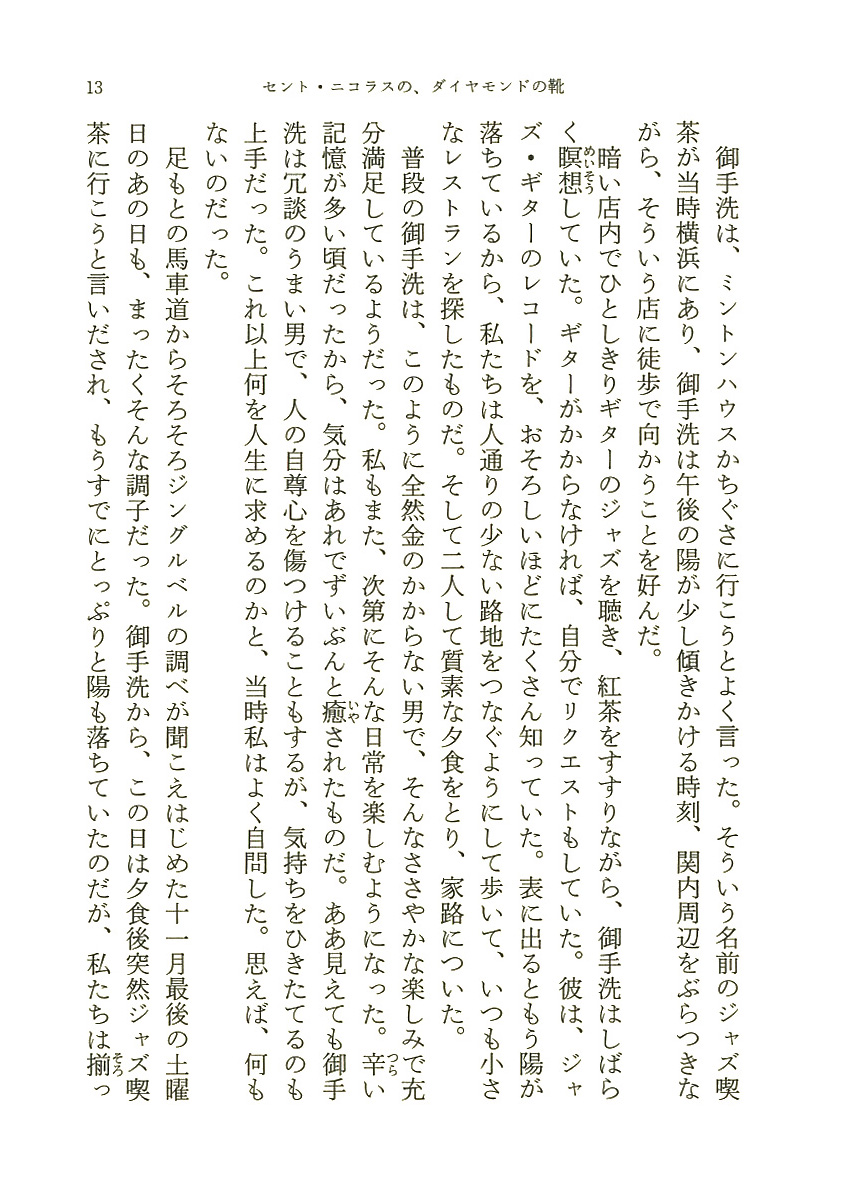 13
セント・ニコラスの、ダイヤモンドの靴
御手洗は、ミントンハウスかちぐさに行こうとよく言った。そういう名前のジャズ喫
茶が当時横浜にあり、御手洗は午後の陽が少し傾きかける時刻、関内周辺をぶらつきな
がら、そういう店に徒歩で向かうことを好んだ。
暗い店内でひとしきりギターのジャズを聴き、紅茶をすすりながら、御手洗はしばら
く瞑想めいそうしていた。ギターがかからなければ、自分でリクエストもしていた。彼は、ジャ
ズ・ギターのレコードを、おそろしいほどにたくさん知っていた。表に出るともう陽が
落ちているから、私たちは人通りの少ない路地をつなぐようにして歩いて、いつも小さ
なレストランを探したものだ。そして二人して質素な夕食をとり、家路についた。
普段の御手洗は、このように全然金のかからない男で、そんなささやかな楽しみで充
分満足しているようだった。私もまた、次第にそんな日常を楽しむようになった。辛つらい
記憶が多い頃だったから、気分はあれでずいぶんと癒いやされたものだ。ああ見えても御手
洗は冗談のうまい男で、人の自尊心を傷つけることもするが、気持ちをひきたてるのも
上手だった。これ以上何を人生に求めるのかと、当時私はよく自問した。思えば、何も
ないのだった。
足もとの馬車道からそろそろジングルベルの調べが聞こえはじめた十一月最後の土曜
日のあの日も、まったくそんな調子だった。御手洗から、この日は夕食後突然ジャズ喫
茶に行こうと言いだされ、もうすでにとっぷりと陽も落ちていたのだが、私たちは揃そろっ